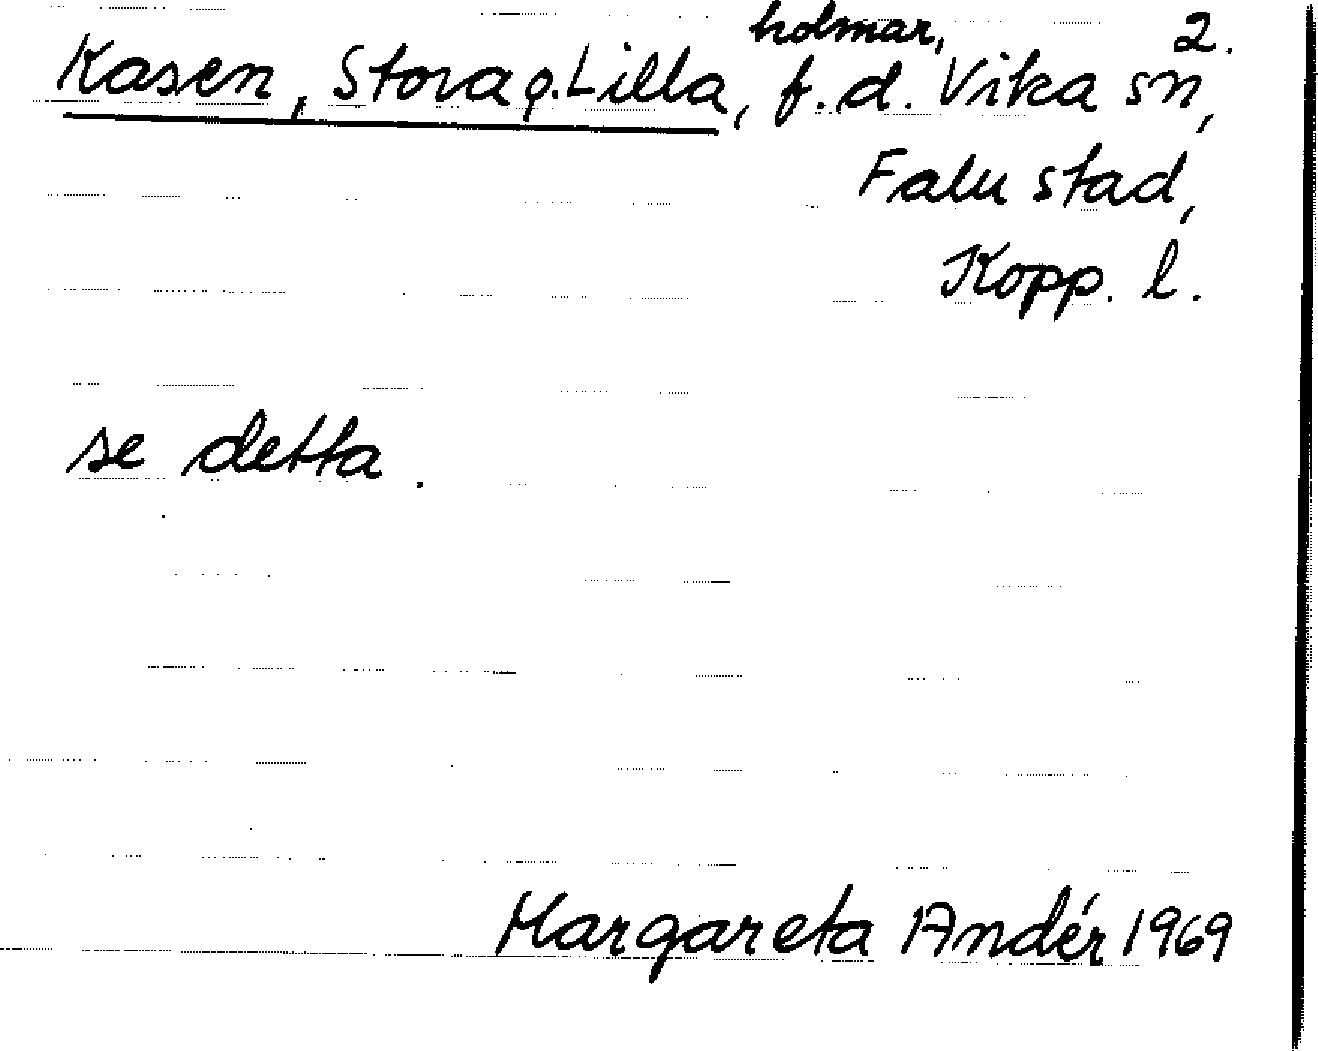 holmar, 2.
Kasen, Stora o. Lilla, f.d. Vika sn,
Falu stad,
Kopp. l.
se detta.
Margareta Andér 1969